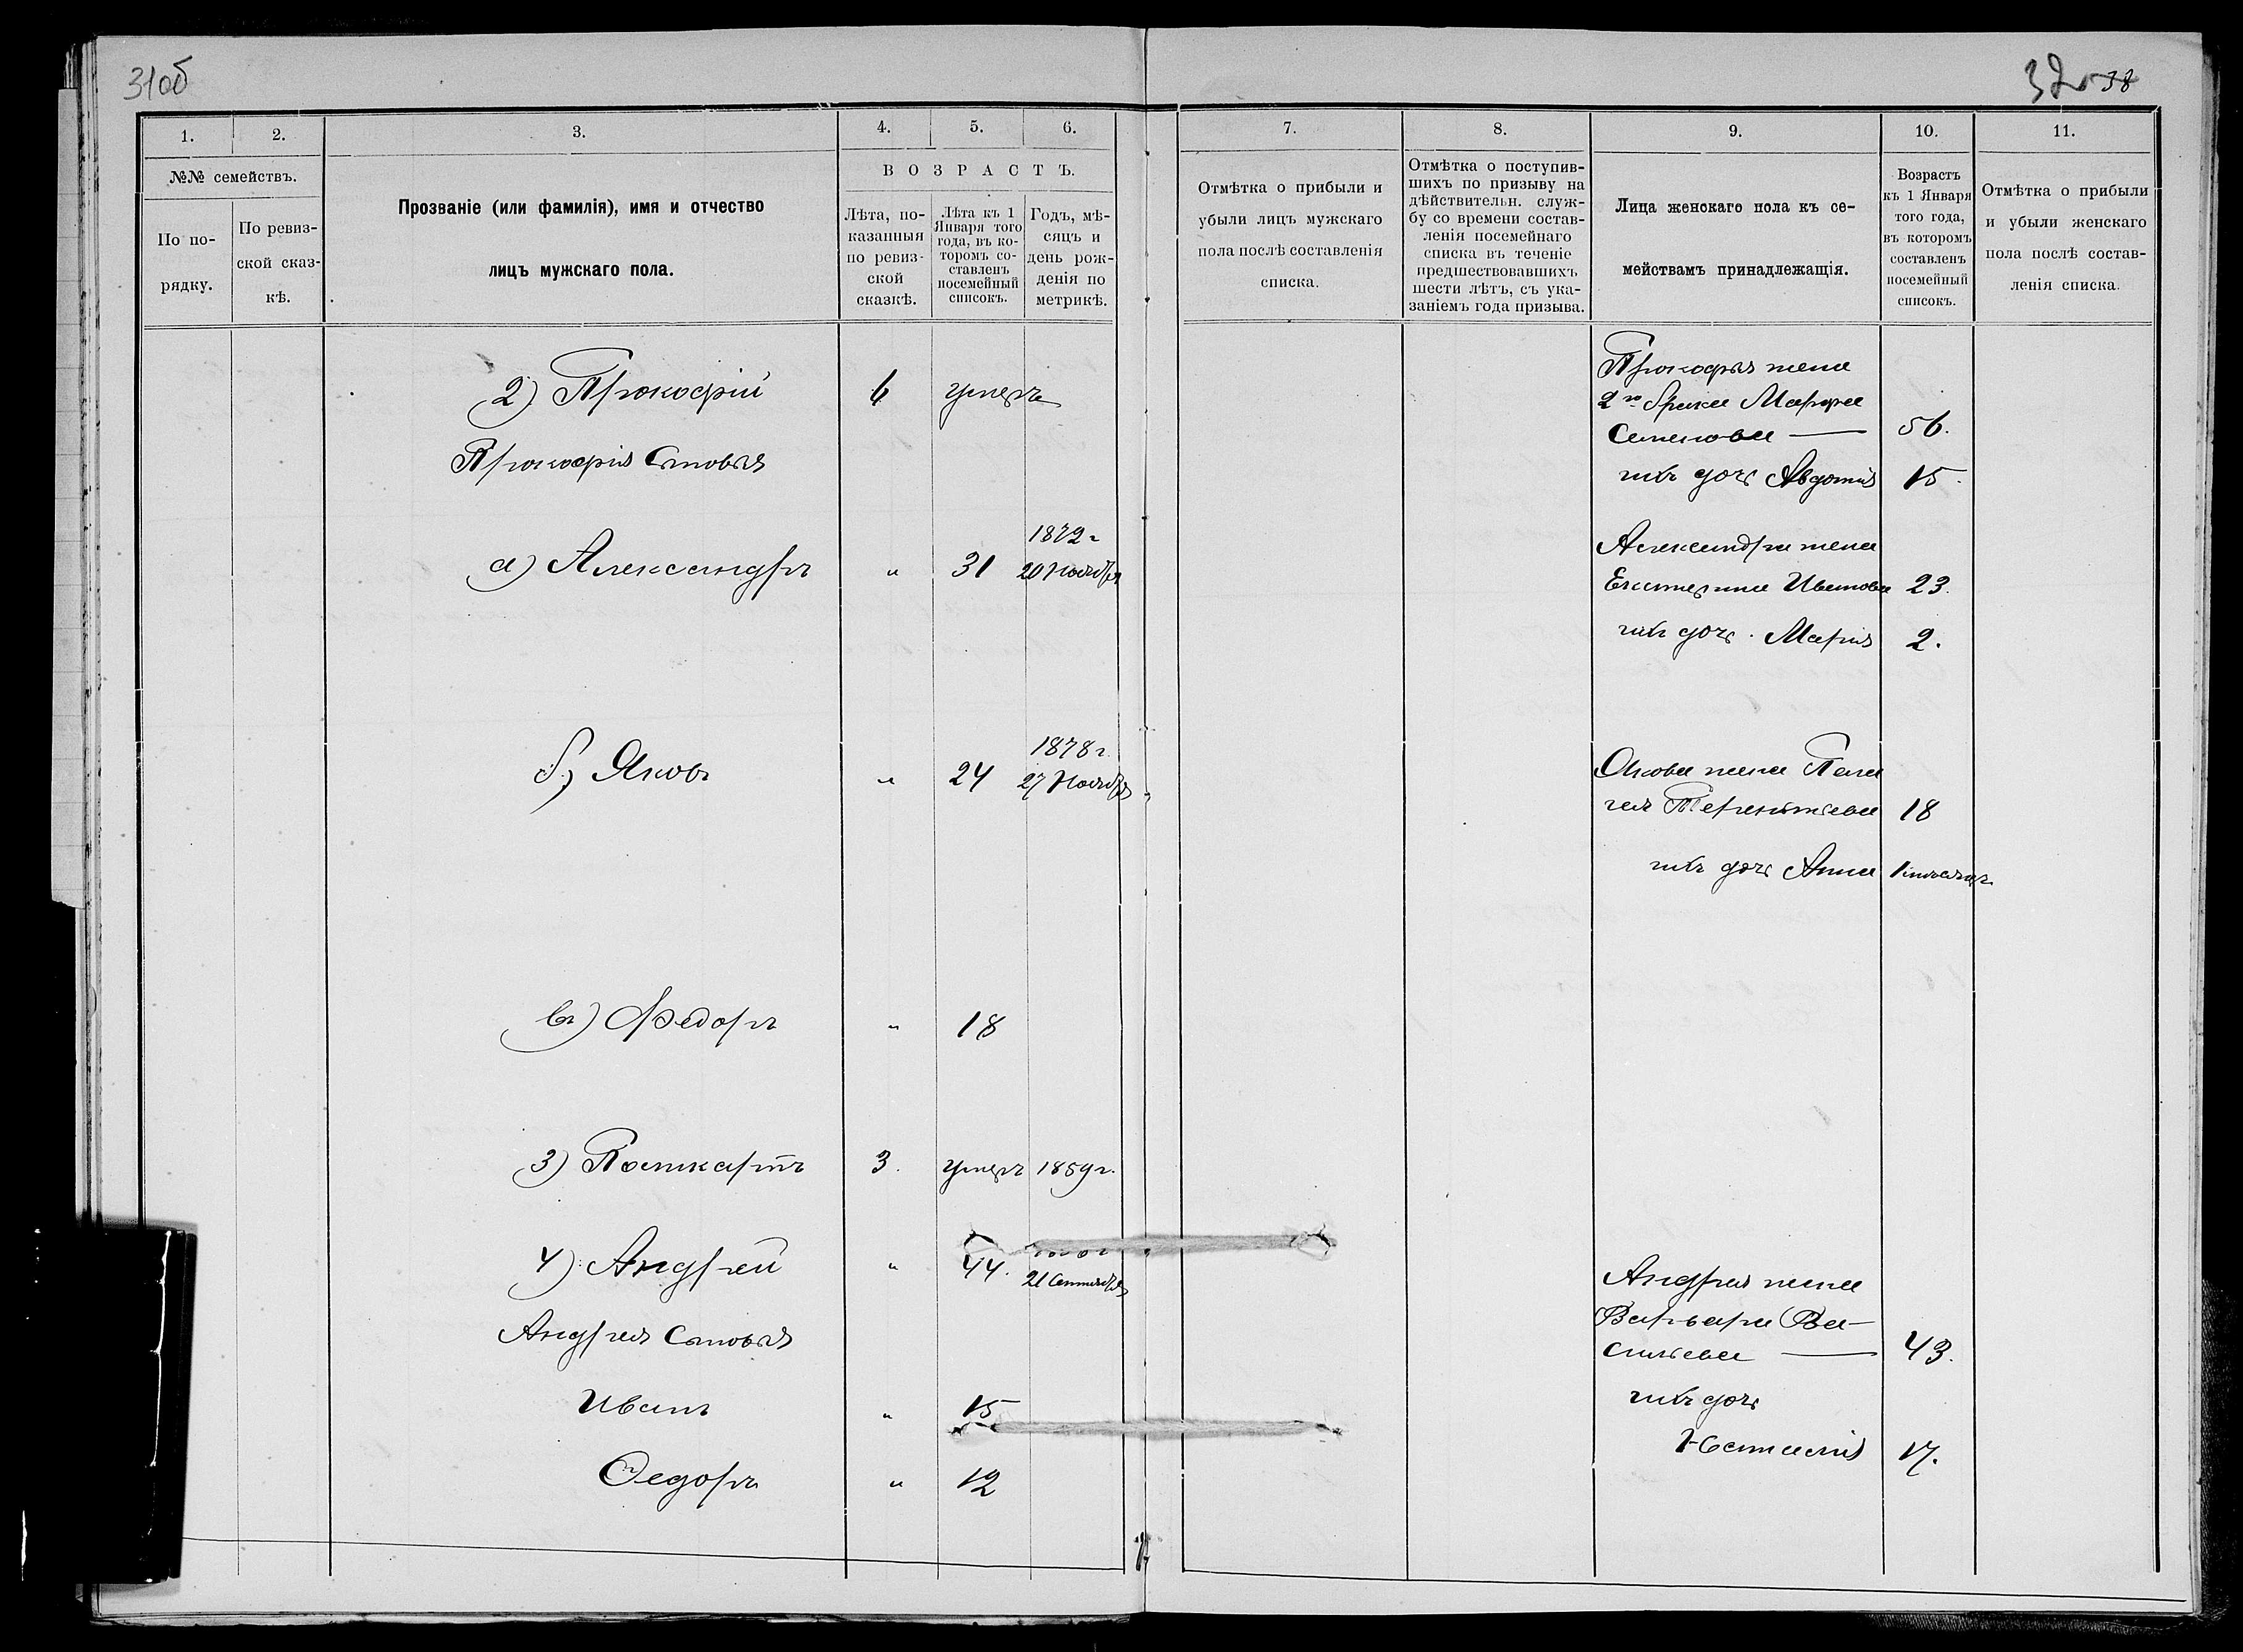 31об
32 38
1.
2.
3.
4.
5.
6.
7.
8.
9.
10.
11.
№№ семействъ.
По по-
рядку.
По ревиз-
ской сказ-
кѣ.
Прозваніе (или фамилія), имя и отчество
лицъ мужскаго пола.
ВОЗРАСТЪ.
Лѣта, по-
казанныя
по ревиз-
ской
сказкѣ.
Лѣта къ 1
Января того
года, въ ко-
торомъ со-
ставленъ
посемейный
списокъ.
Годъ, мѣ-
сяцъ и
день рож-
денія по
метрикѣ.
Отмѣтка о прибыли и
убыли лицъ мужскаго
пола послѣ составленія
списка.
Отмѣтка о поступив-
шихъ по призыву на
дѣйствительн. служ-
бу со времени состав-
ленія посемейнаго
списка въ теченіе
предшествовавшихъ
шести лѣтъ, съ ука-
заніемъ года призыва.
Лица женскаго пола къ се-
мействамъ принадлежащія.
Возрастъ
къ 1 Января
того года,
въ которомъ
составленъ
посемейный
списокъ.
Отмѣтка о прибыли
и убыли женскаго
пола послѣ состав-
ленія списка.
2) Прокофій 6 умеръ
Прокофія сыновья
Прокофья жена
2го брака Марфа
Семенова — 56.
ихъ дочь Авдотья 15.
1872 г
а) Александръ " 31 20 Ноября
Александра жена
Екатерина Иванова 23.
ихъ дочь Марія 2.
1878 г.
б) Яковъ " 24 27 Ноября
Якова жена Пела
гея Терентьева 18
ихъ дочь Анна 1 мѣсяцъ
в) Федоръ " 18
3) Поликарпъ 3. умеръ 1859 г.
4) Андрей " 44. 21 Сентября
Андрея сыновья
Андрея жена
Варвара Ва-
сильева — 43.
Иванъ " 15
ихъ дочь
Наталія 17.
Федоръ " 12